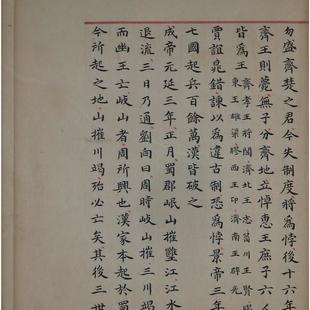 勿盛齊楚之君今失制度將為悖後十六年
齊王則薨無子分齊地立悼惠王庶子六人
皆為王齊孝王將閭濟北王志菑川王賢膠
東王雄渠膠西王卬濟南王辟光
賈誼晁錯諫以為違古制恐為悖景帝三年
七國起兵百餘萬漢皆破之
成帝元延三年正月蜀郡岷山摧壅江江水
逆流三日乃通劉向曰周時岐山摧三川竭
而幽王亡岐山者周所興也漢家本起於蜀
今所起之地山摧川竭殆必亡矣其後三世